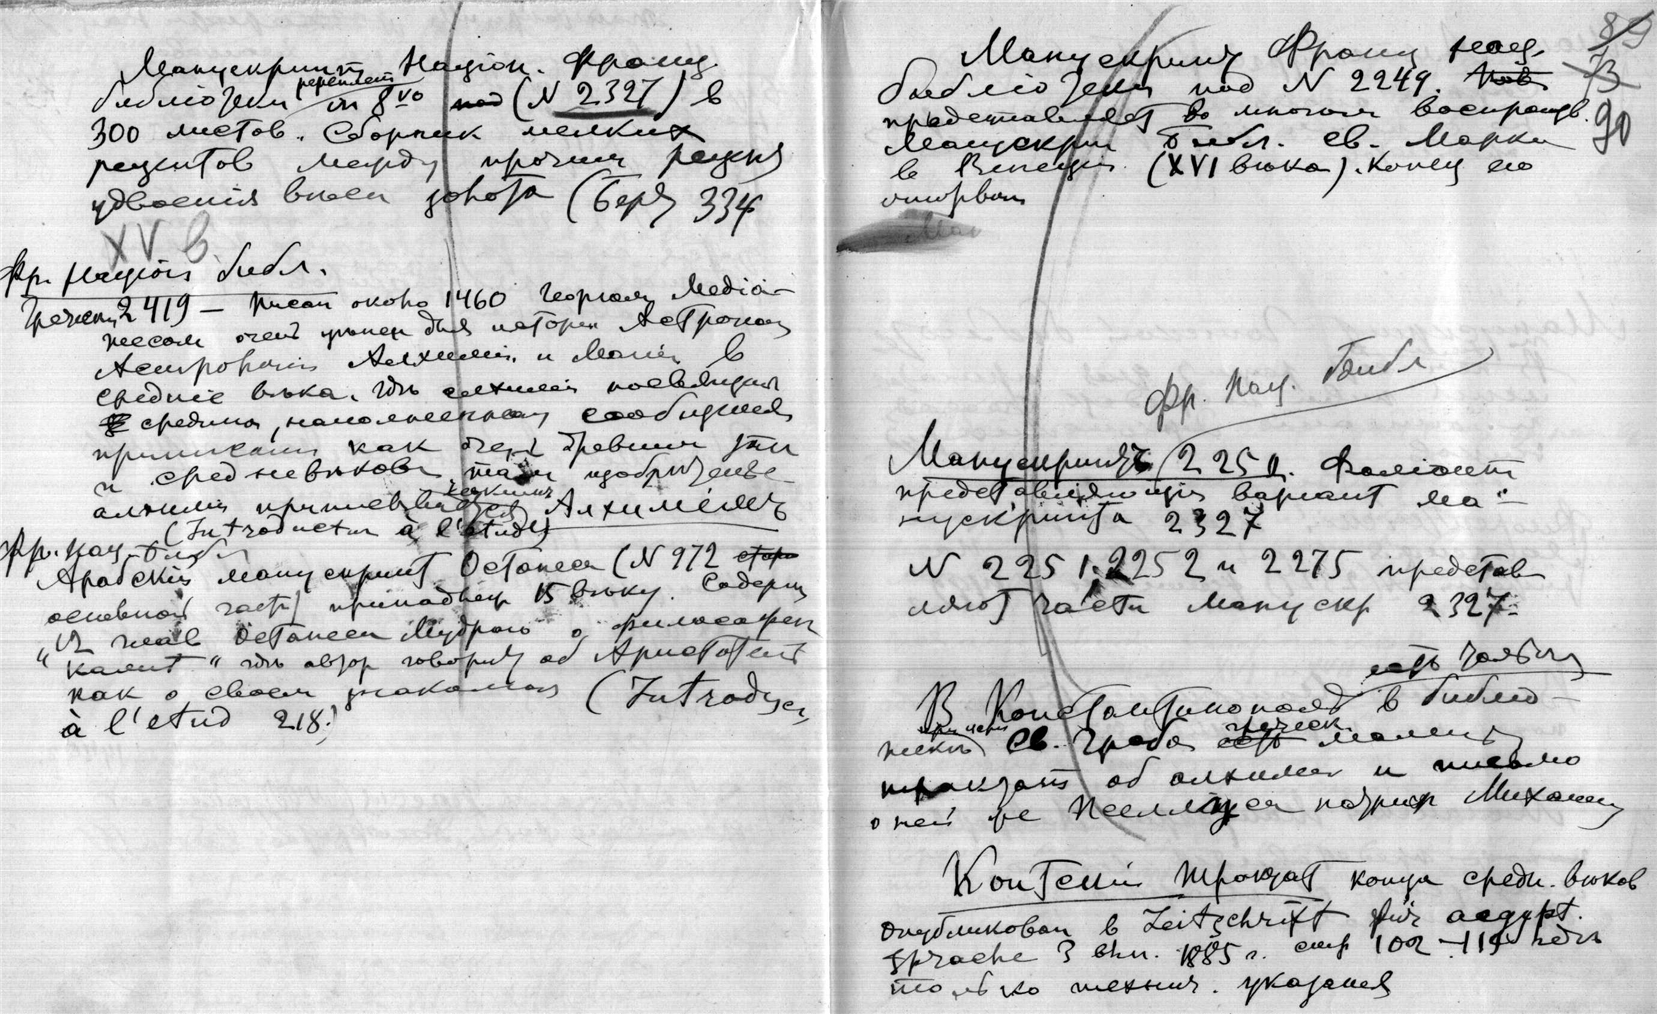 Манускрипт Націон. Франц.
библіотеки in 8vo под (N 2327) в
300 листов. Сборник мелких
рецептов между прочим рецепт
удвоенія веса золота (Берт 334
XV в.
Фр. Націон библ.
2419 — писан около 1460 Георгом Midia-
тесом очень ценен для истории Астроном
Астрологіи Алхиміи и Магіи в
средніе века, где алхиміи посвящена
средина, наполненная сообщеніям
как очень древними
и средневековыми
алхиміи Алхимистъ
(Introduction à l'etude)
Фр. нац. библ
Арабскій манускрипт Останеса (N 972
основной части) принадлеж 15 веку. Содерж
"12 глав Останеса Мудраго о философск
камне" где автор говорит об Аристотеле
как о своем знакомом (Introduct
à l'etud 218.)
89
73
90
Манускрипт Франц нац.
библіотеки под N 2249.
представляет во многом воспроизв.
Манускрип Библ. св. Марка
в Венеции (XVI века). Конец его
оторван
Фр. нац. библ
Манускриптъ 2250. Фоліант
представляющій вариант ма-
нускрипта 2327
N 2251, 2252 и 2275 представ
ляют части манускр 2327.
В Константинополе в библіо-
теке св. Гроба греческ.
трактат об алхиміи и письмо
о ней же Пселлуса патриар Михаилу
Коптскій трактат конца средн. веков
опубликован в Zeitschrift für aegypt.
Sprache 3 вып. 1885 г. стр 102-119 где
только технич. указанія